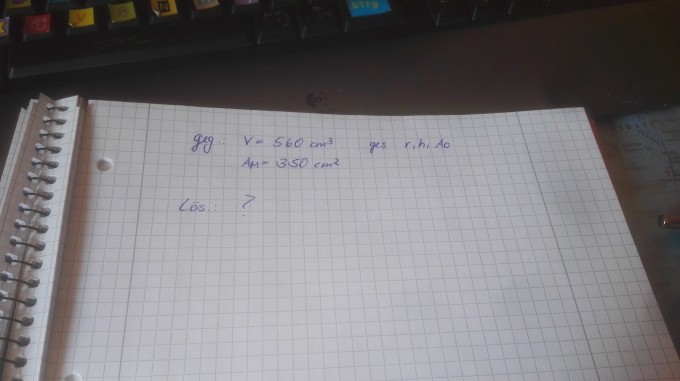 geg.: V = 560 cm³ ges r, h, Ao
AM = 350 cm²
Lös.: ?